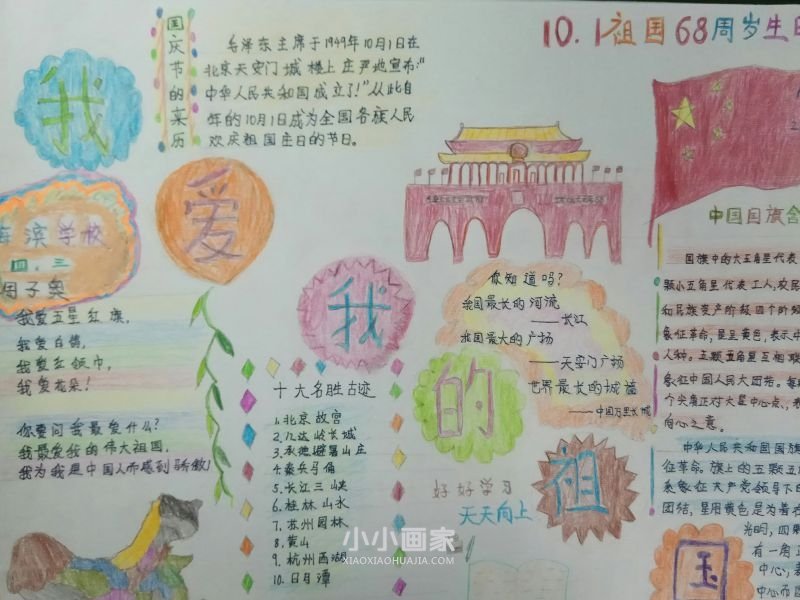 我
国庆节的来历
毛泽东主席于1949年10月1日在
北京天安门城楼上庄严地宣布:“
中华人民共和国成立了!”从此自
年的10月1日成为全国各族人民
欢庆祖国生日的节日。
10.1祖国68周岁生日
滨学校
四.三
子奥
爱
我爱五星红旗,
我爱白鸽,
我爱红领巾,
我爱花朵!
你要问我最爱什么?
我最爱我的伟大祖国,
我为我是中国人而感到骄傲!
我
十大名胜古迹
1.北京故宫
2.八达岭长城
3.承德避暑山庄
4.秦兵马俑
5.长江三峡
6.桂林山水
7.苏州园林
8.黄山
9.杭州西湖
10.日月潭
你知道吗?
我国最长的河流
——长江
我国最大的广场
——天安门广场
世界最长的城墙
——中国万里长城
的
好好学习
天天向上
祖
国
中国国旗含
国旗中的大五角星代表
颗小五角星代表工人,农民
和民族资产阶级四个阶级
象征革命,星呈黄色,表示中
人种。五颗五角星互相联
象征中国人民大团结。每
个尖角正对大星中心点,表
向心之意。
中华人民共和国国旗
征革命。旗上的五颗五
系象征共产党领导下的
团结,星用黄色是为着在
光明,四颗
有一角正
中心,表
中心而团
小小画家
XIAOXIAOHUAJIA.COM